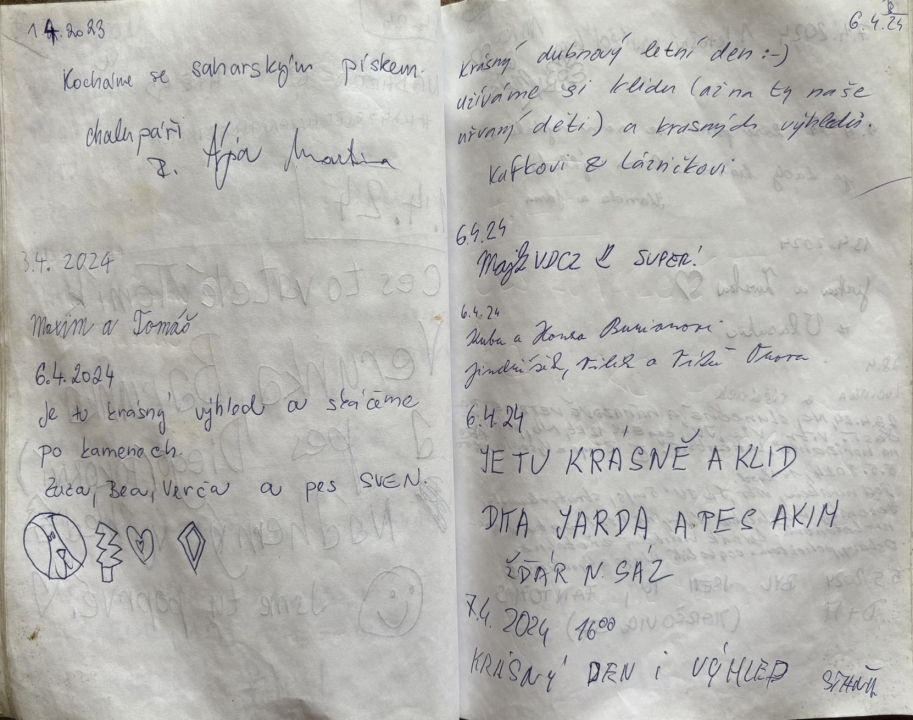 1.4.2023
Kocháme se saharským pískem.
chalupáři
Martina
3.4. 2024
Maxim a Tomáš
6.4.2024
Je tu krásný výhled a skáčeme
po kamenech.
Zuza, Bea, Verča a pes SVEN.
6.4.24
Krásný dubnový letní den :-)
užíváme si klidu (až na ty naše
uřvaný děti) a krásných výhledů.
Kafkovi & Lázničkovi
6.4.24
SUPER!
6.4.24
Kuba a Honza Burianovi
6.4.24
JE TU KRÁSNĚ A KLID
JARDA A PES AKIM
ŽĎÁR N. SÁZ
7.4. 2024 (16⁰⁰
KRÁSNÝ DEN i VÝHLED